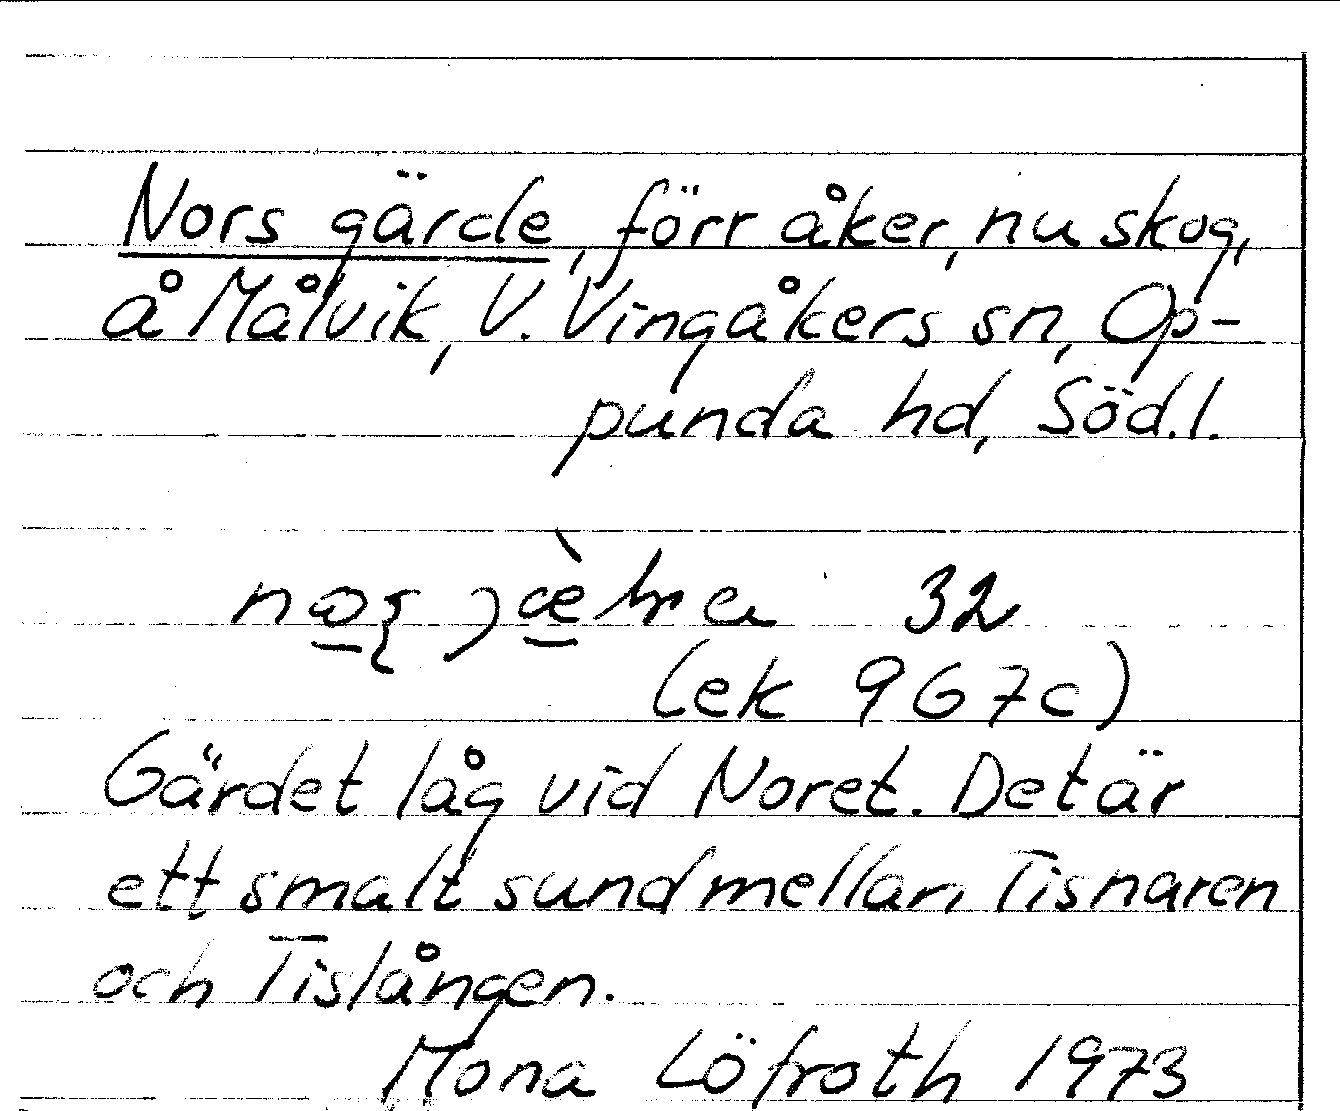 Nors gärde, förr åker, nu skog,
å Målvik, V. Vingåkers sn, Op-
punda hd, Söd.l.
32
(ek 9G7c)
Gärdet låg vid Noret. Det är
ett smalt sund mellan Tisnaren
och Tislången.
Mona Löfroth 1973